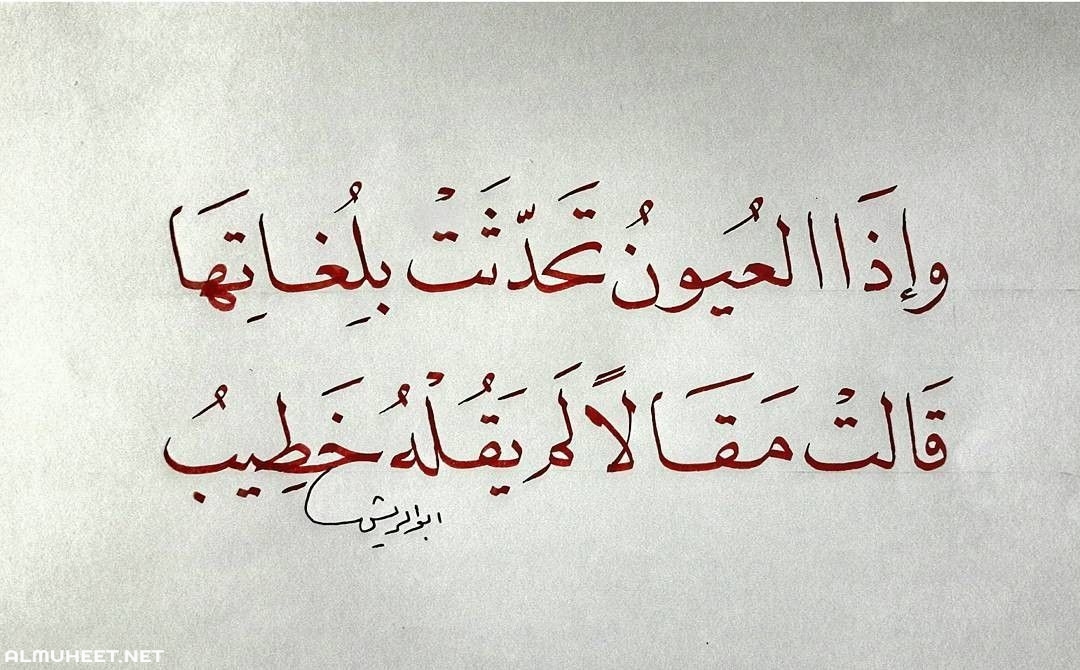 وإِذَا العُيونُ تَحَدّثَتْ بلُِغاتِهَا
قَالتْ مَقَالاً لَم يَقُلْهُ خَطِيبُ
ابوالريش
ALMUHEET.NET